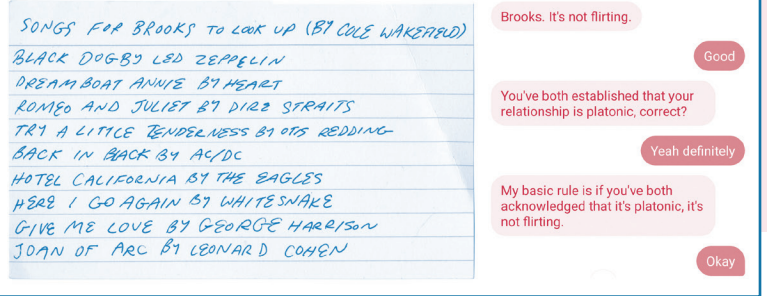 SONGS FOR BROOKS TO LOOK UP (BY COLE WAKEFIELD)
BLACK DOG BY LED ZEPPELIN
DREAMBOAT ANNIE BY HEART
ROMEO AND JULIET BY DIRE STRAITS
TRY A LITTLE TENDERNESS BY OTIS REDDING
BACK IN BLACK BY AC/DC
HOTEL CALIFORNIA BY THE EAGLES
HERE I GO AGAIN BY WHITESNAKE
GIVE ME LOVE BY GEORGE HARRISON
JOAN OF ARC BY LEONARD COHEN
Brooks. It's not flirting.
Good
You've both established that your
relationship is platonic, correct?
Yeah definitely
My basic rule is if you've both
acknowledged that it's platonic, it's
not flirting.
Okay